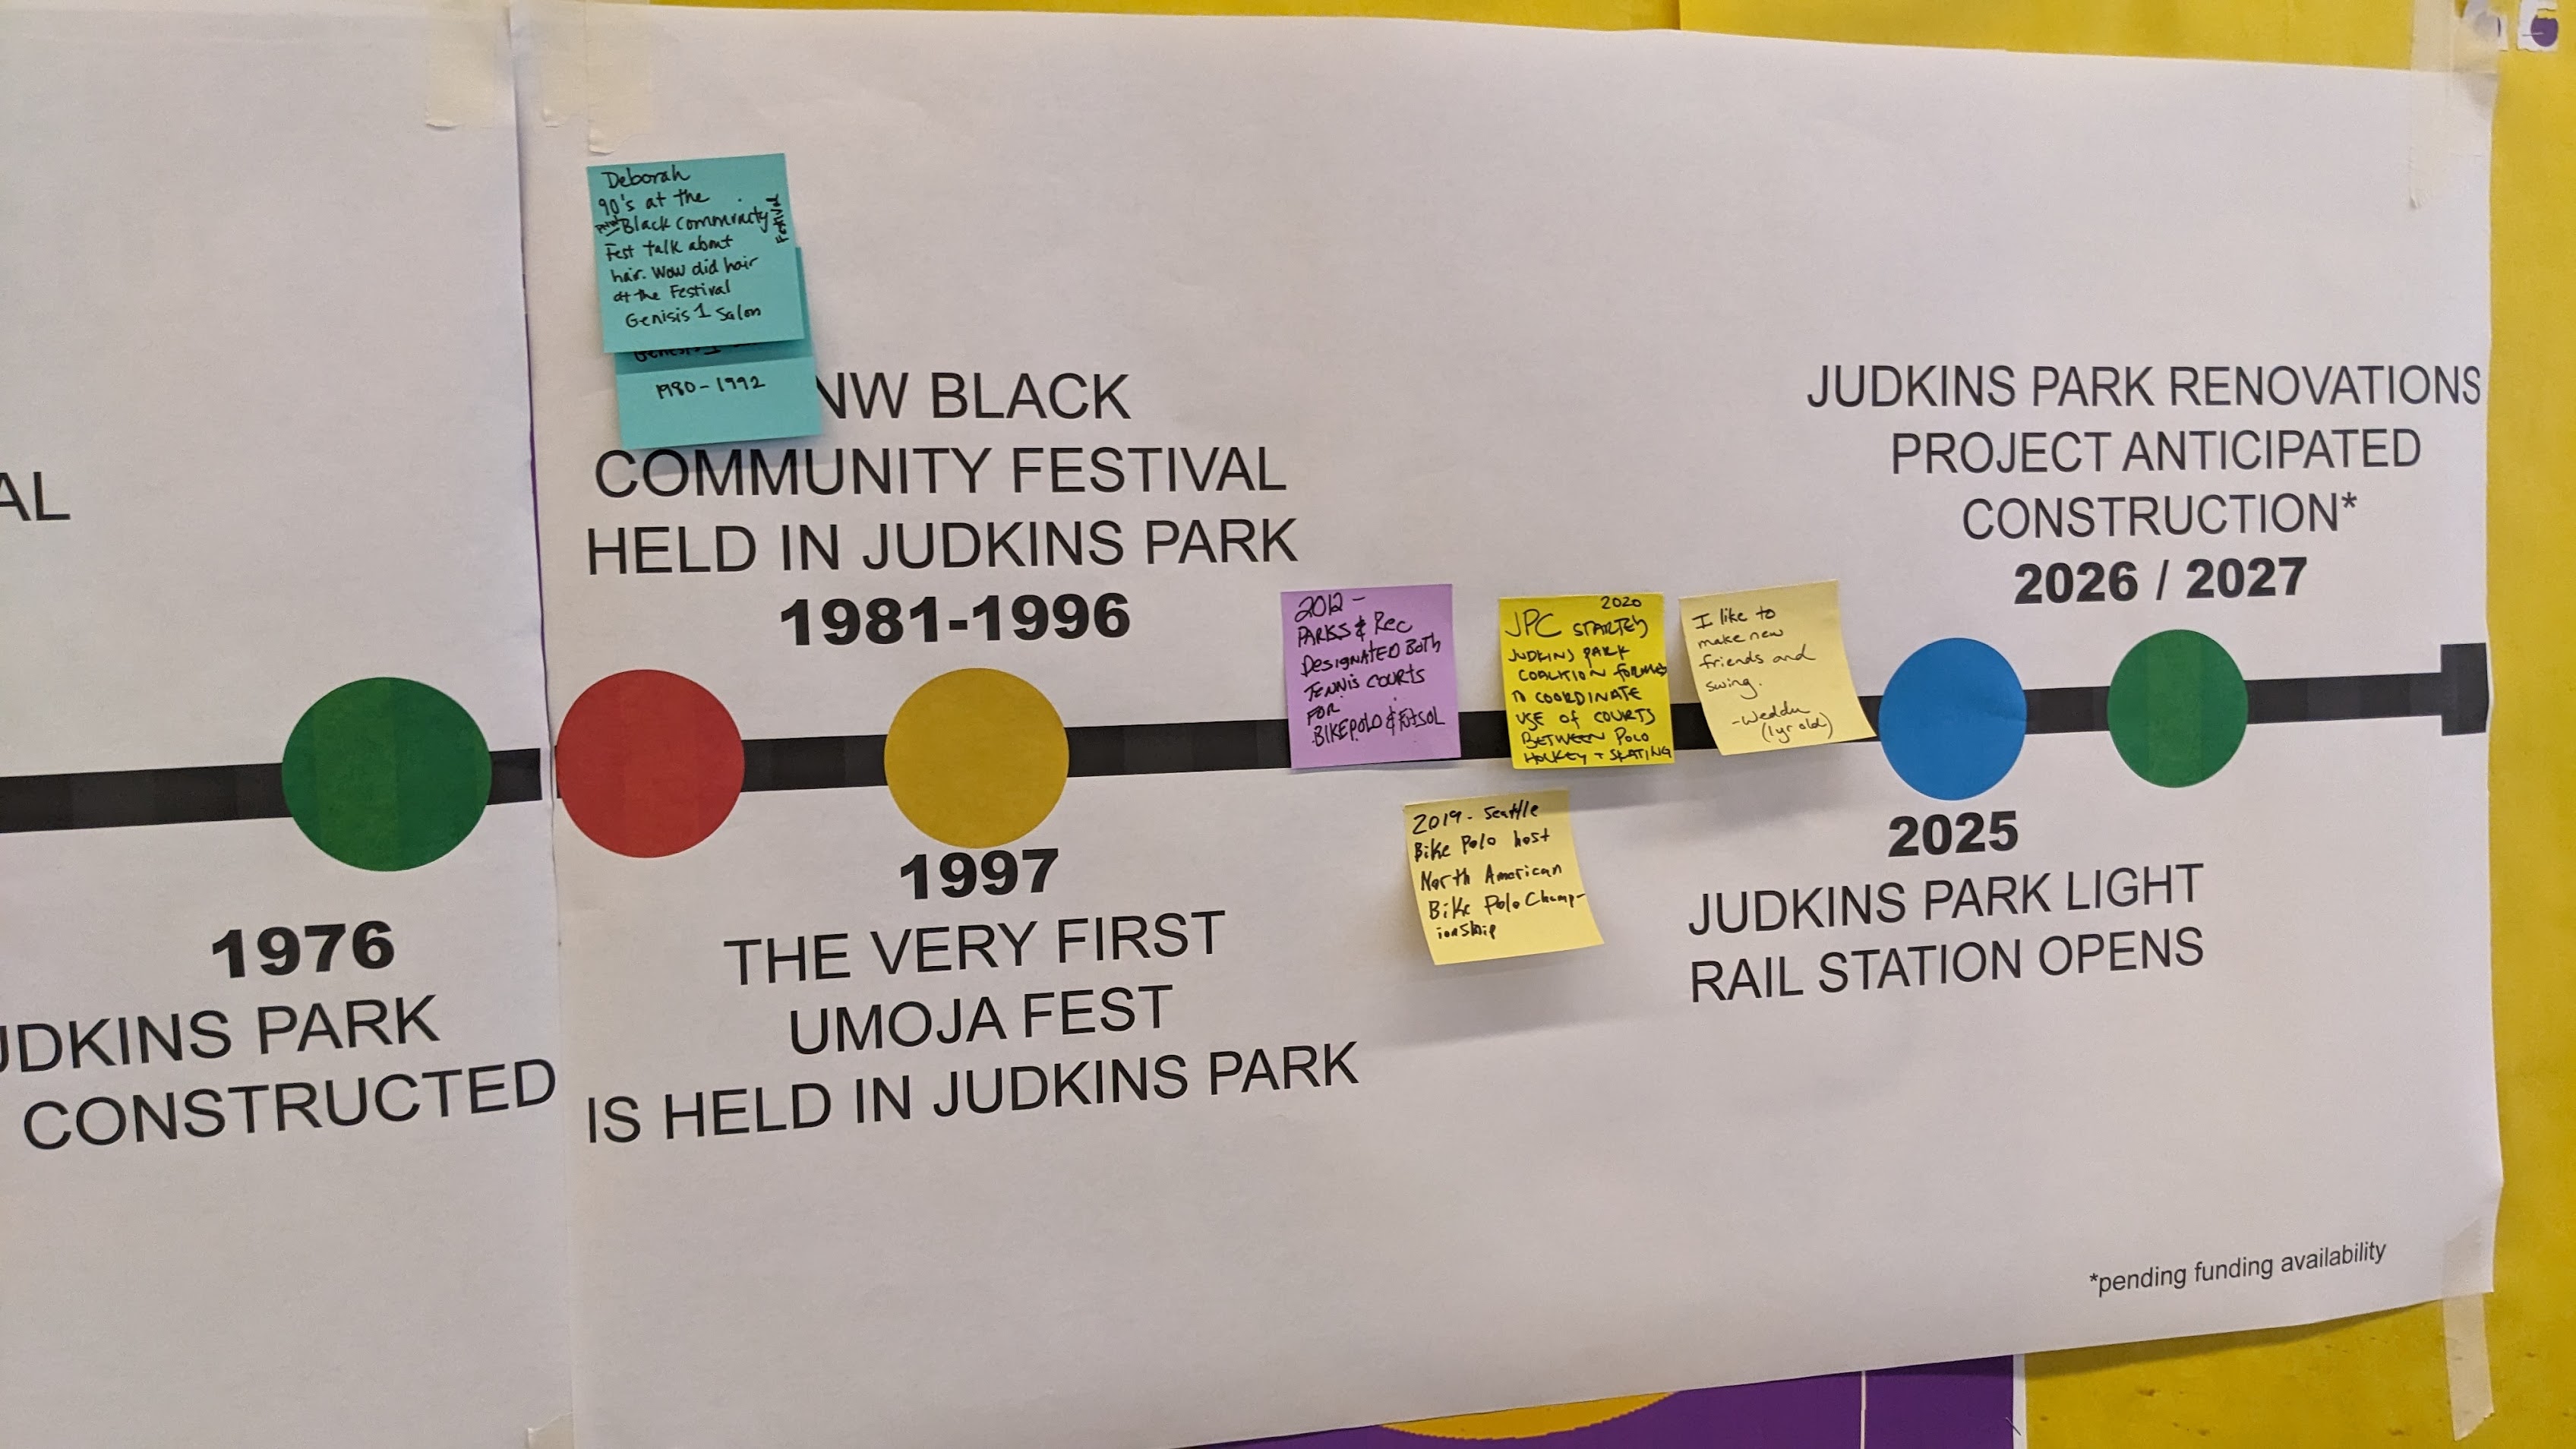 AL
1976
JUDKINS PARK
CONSTRUCTED
Deborah
90's at the
Black Community Festival
Fest talk about
hair. Wow did hair
at the Festival
Genisis 1 Salon
1980-1992
NW BLACK
COMMUNITY FESTIVAL
HELD IN JUDKINS PARK
1981-1996
1997
THE VERY FIRST
UMOJA FEST
IS HELD IN JUDKINS PARK
2012 -
PARKS & REC
DESIGNATED BOTH
TENNIS COURTS
FOR
BIKEPOLO & FUTSOL
2019 - Seattle
Bike Polo host
North American
Bike Polo Champ-
ionship
2020
JPC STARTED
JUDKINS PARK
COALITION FORMED
TO COORDINATE
USE OF COURTS
BETWEEN POLO
HOCKEY + SKATING
I like to
make new
friends and
swing.
(1yr old)
2025
JUDKINS PARK LIGHT
RAIL STATION OPENS
JUDKINS PARK RENOVATIONS
PROJECT ANTICIPATED
CONSTRUCTION*
2026 / 2027
*pending funding availability